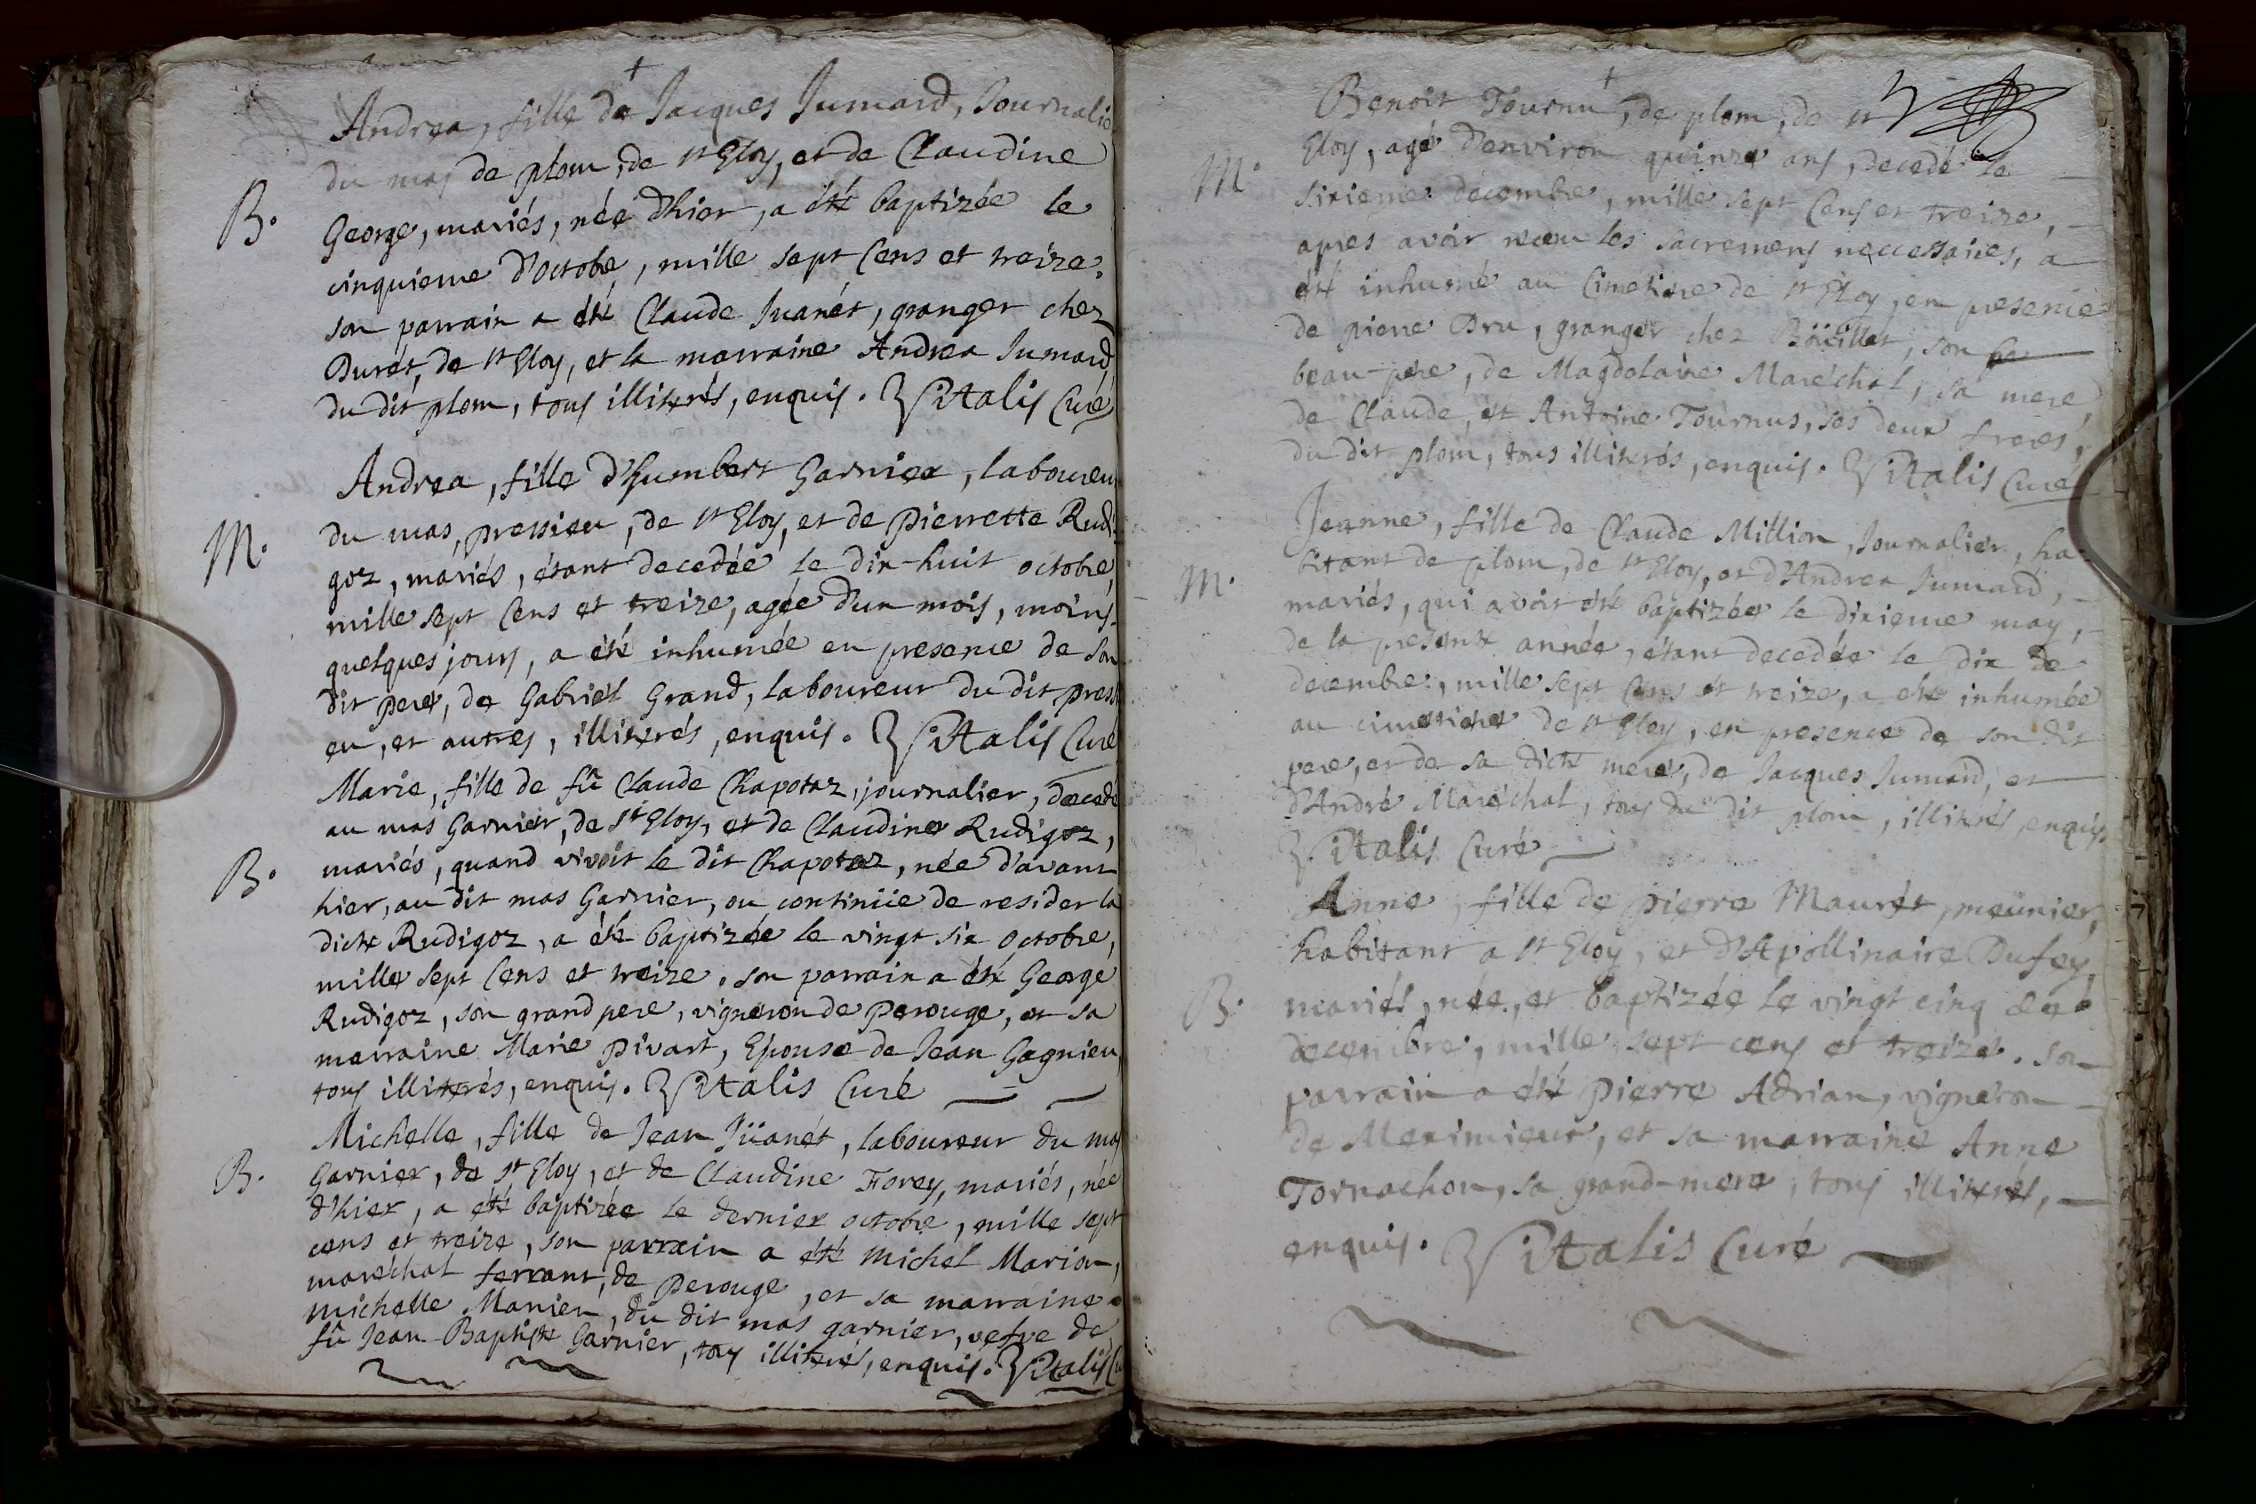 Andrea, fille de Jacques Jumard, Journalie
du mas de plom, de st Eloy, et de Claudine
B. George, mariés, née d'hier, a été baptizée le
cinquieme d'Octobe, mille sept Cens et treize.
son parrain a été Claude Juanét, granger chez
Durét, de st Eloy, et la marraine Andrea Jumard
du dit plom, tous illiterés, enquis. Vitalis Curé
Andrea, fille d'humbert Garnier, laboureu
M. du mas, pressieu, de st Eloy, et de Pierrette Rudi
goz, mariés, étant decedée le dix-huit octobre,
mille sept Cens et treize, agée d'un mois, moins
quelques jours, a été inhumée en presence de son
dit pere, de Gabriel Grand, laboureur du dit pressi
eu, et autres, illiterés, enquis. Vitalis Curé
Marie, fille de fû Claude Chapotaz, journalier, decedé
au mas Garnier, de st Eloy, et de Claudine Rudigoz,
B. mariés, quand vivoit le dit Chapotaz, née d'avant
hier, au dit mas Garnier, ou continüe de resider la
dicte Rudigoz, a été baptizée le vingt six Octobre,
mille sept Cens et treize. son parrain a été George
Rudigoz, son grand pere, vigneron de Perouge, et sa
marraine Marie Pivart, Epouse de Jean Gagnieu,
tous illiterés, enquis. Vitalis Curé
Michelle, fille de Jean Jüanét, laboureur du mas
B. Garnier, de st Eloy, et de Claudine Forey, mariés, née
d'hier, a été baptizée le dernier octobre, mille sept
cens et treize, son parrain a été Michel Marion,
marechal ferrant, de Perouge, et sa marraine
Michelle Manien, du dit mas garnier, vefve de
fû Jean-Baptiste Garnier, tous illiterés, enquis. Vitalis Cu
Benoit Tournu, de plom, de st
M. Eloy, agé d'environ quinze ans, decedé le
sixieme decembre, mille sept Cens et treize,
apres avoir receu les sacremens neccessaires, a
été inhumé au Cimetiere de st Eloy, en presence
de pierre Dru, granger chez Böüillet, son
beau-pere, de Magdelaine Maréchal, sa mere,
de Claude, et Antoine Tournus, ses deux freres,
du dit plom, tous illiterés, enquis. Vitalis Curé
Jeanne, fille de Claude Million, Journalier, ha-
M. bitant de plom, de st Eloy, et d'Andrea Jumard,
mariés, qui avoit été baptizée le dixieme may,
de la presente année, étant decedée le dix de
decembre, mille sept Cens et treize, a été inhumée
au cimetiere de st Eloy, en presence de son dit
pere, et de sa dicte mere, de Jacques Jumard, et
d'André Maréchal, tous du dit plom, illiterés enquis.
Vitalis Curé
Anne, fille de pierre Maurét, meünier,
habitant a st Eloy, et d'Apollinaire Dufey,
B. mariés, née, et baptizée le vingt cinq de
decembre, mille sept cens et treize. son
parrain a été Pierre Adrian, vigneron
de Meximieux, et sa marraine Anne
Tornachon, sa grand-mere, tous illiterés,
enquis. Vitalis Curé